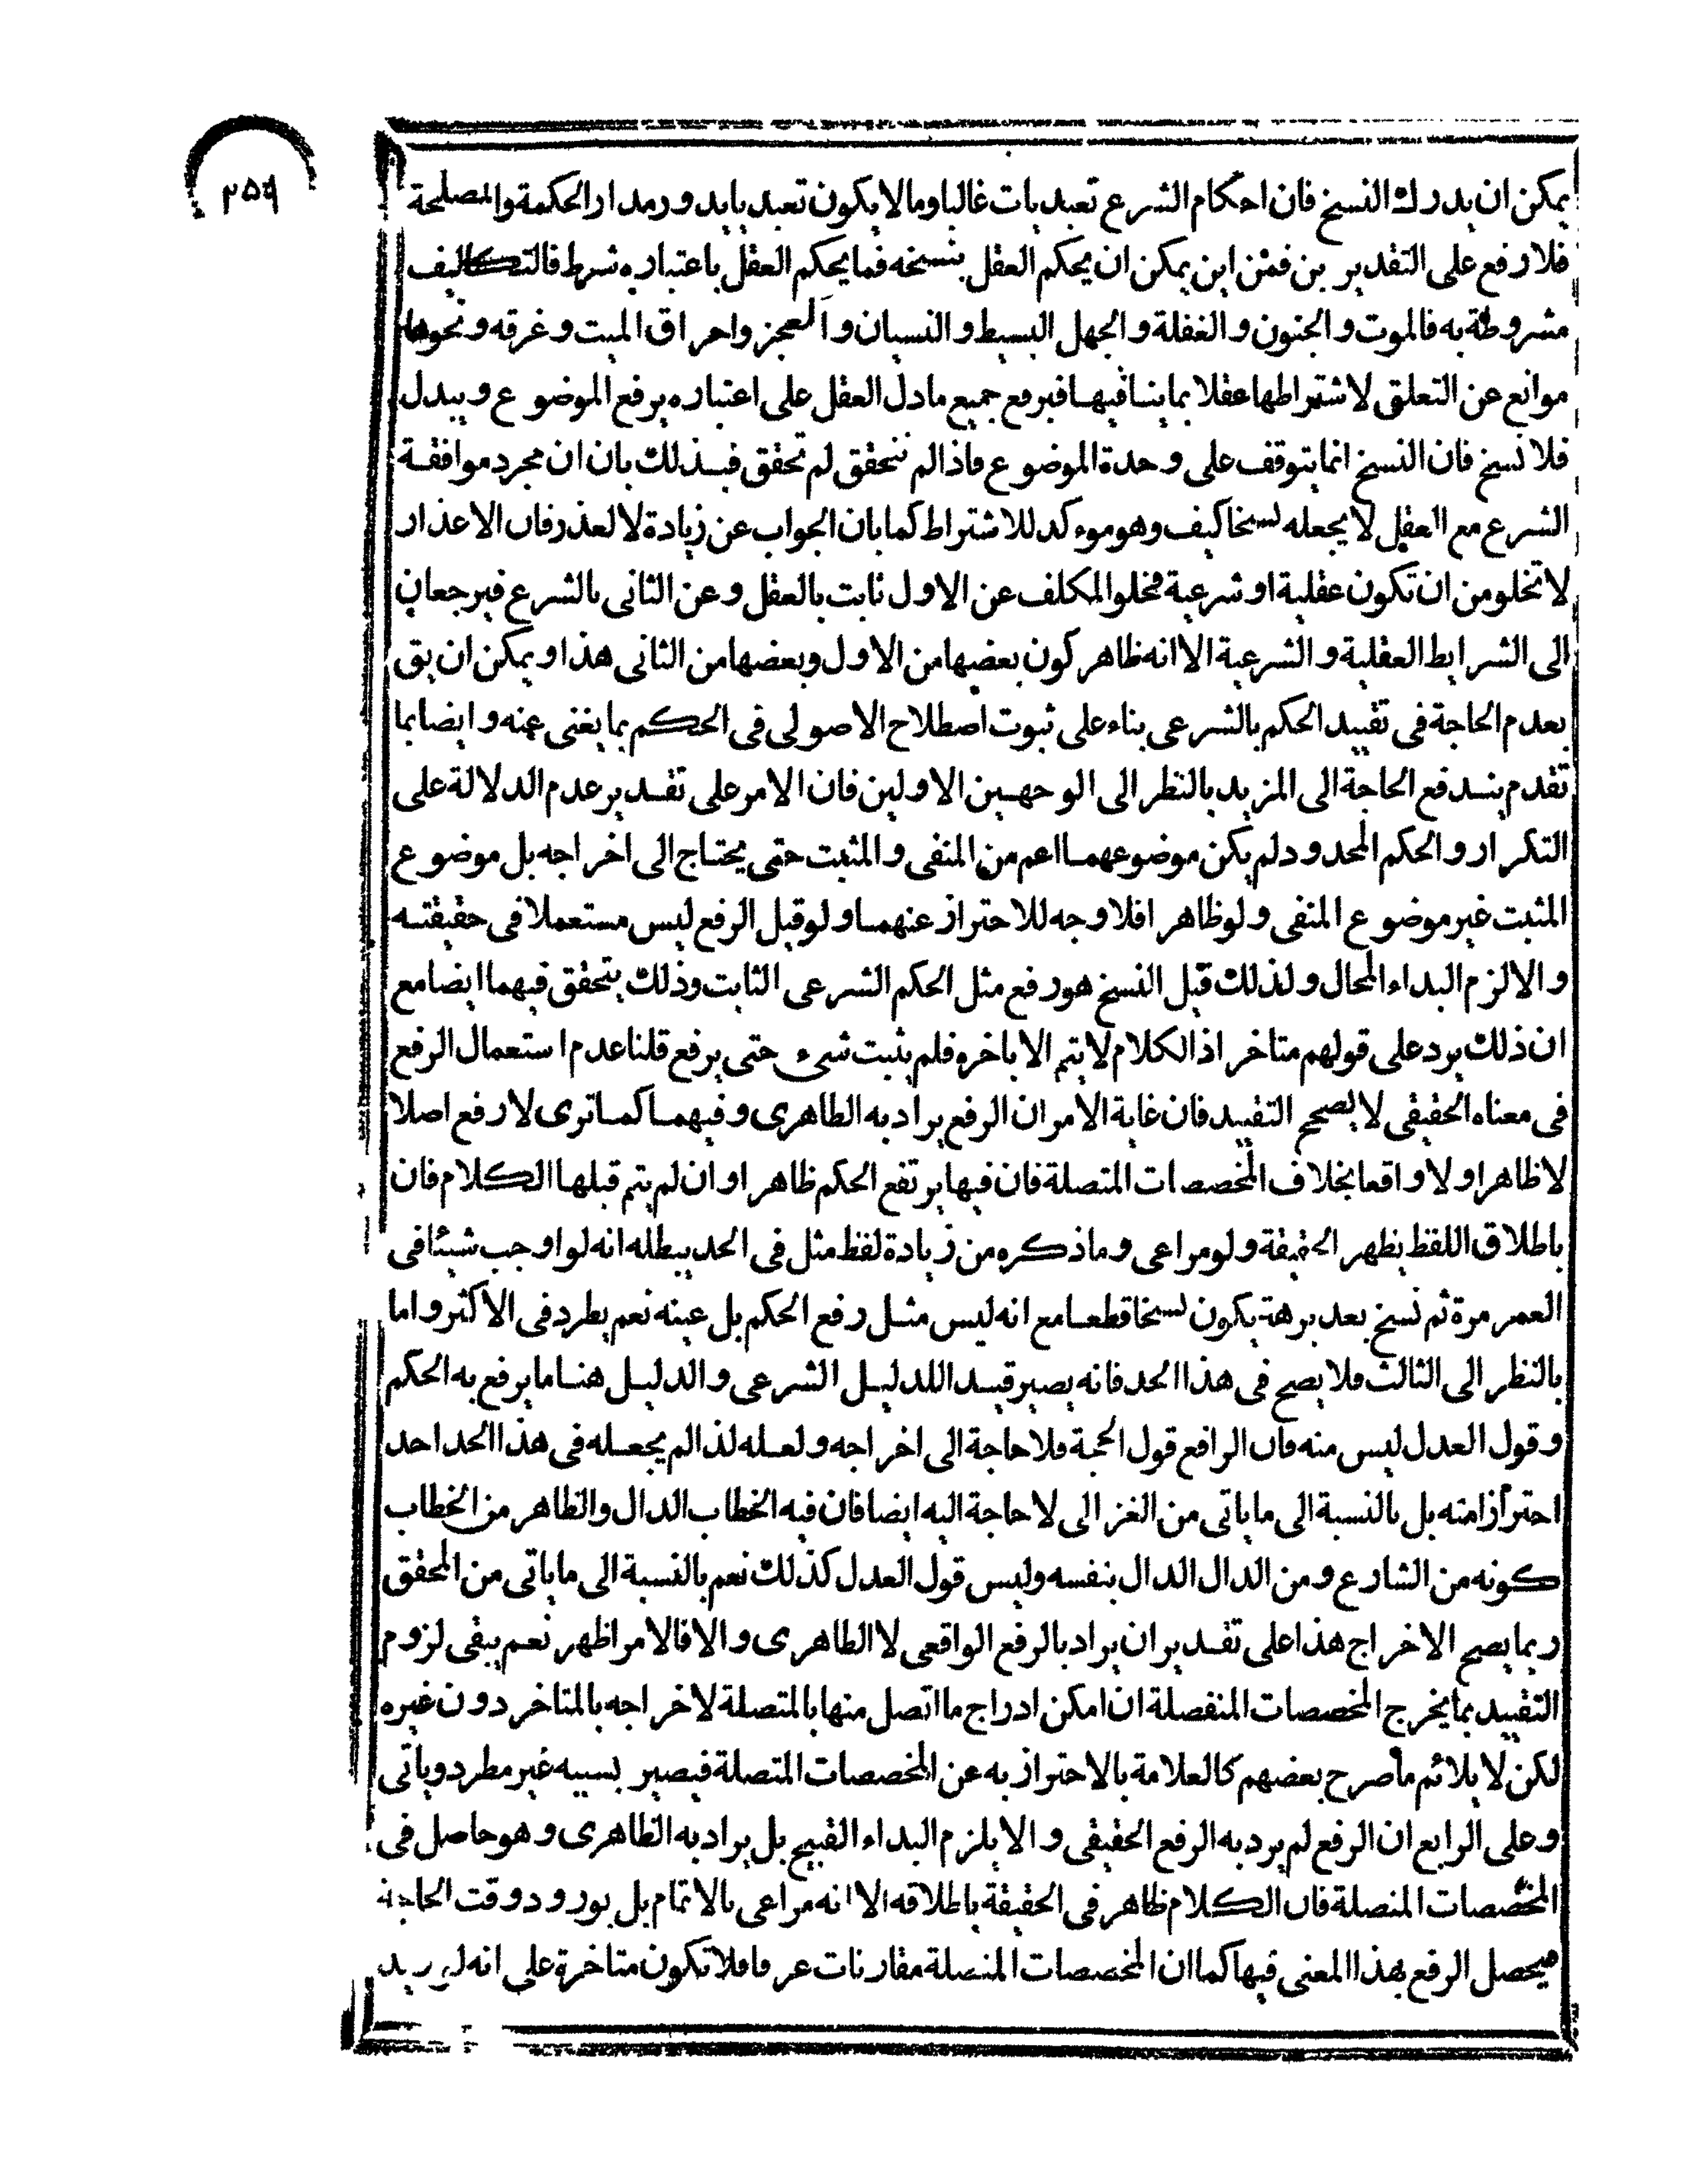 ٢٥٩
يمكن ان يدرك النسخ فان احكام الشرع تعبديات غالبا وما لا يكون تعبديا يدور مدار الحكمة والمصلحة
فلا رفع على التقديرين فمن اين يمكن ان يحكم العقل بنسخه فما يحكم العقل باعتباره شرط فالتكاليف
مشروطة به فالموت والجنون والغفلة والجهل البسيط والنسيان والعجز واحراق الميت وغرقه ونحوها
موانع عن التعلق لاشتراطها عقلا بما ينافيها فيرفع جميع ما دل العقل على اعتباره يرفع الموضوع ويبدل
فلا نسخ فان النسخ انما يتوقف على وحدة الموضوع فاذا لم تتحقق لم تحقق فبذلك بان ان مجرد موافقة
الشرع مع العقل لا يجعله نسخا كيف وهو موءكد للاشتراط كما بان الجواب عن زيادة لا لعذر فان الاعذار
لا تخلو من ان تكون عقلية او شرعية فخلو المكلف عن الاول ثابت بالعقل وعن الثانى بالشرع فيرجعان
الى الشرايط العقلية والشرعية الا انه ظاهر كون بعضها من الاول وبعضها من الثانى هذا ويمكن ان يق
بعدم الحاجة فى تقييد الحكم بالشرعى بناء على ثبوت اصطلاح الاصولى فى الحكم بما يغنى عنه وايضا بما
تقدم يندفع الحاجة الى المزيد بالنظر الى الوجهين الاولين فان الامر على تقدير عدم الدلالة على
التكرار والحكم المحدود لم يكن موضوعهما اعم من المنفى والمثبت حتى يحتاج الى اخراجه بل موضوع
المثبت غير موضوع المنفى ولو ظاهرا فلا وجه للاحتراز عنهما ولو قيل الرفع ليس مستعملا فى حقيقته
والا لزم البداء المحال ولذلك قيل النسخ هو رفع مثل الحكم الشرعى الثابت وذلك يتحقق فيهما ايضا مع
ان ذلك يرد على قولهم متاخر اذ الكلام لا يتم الا باخره فلم يثبت شىء حتى يرفع قلنا عدم استعمال الرفع
فى معناه الحقيقى لا يصحح التقييد فان غاية الامر ان الرفع يراد به الظاهرى وفيهما كما ترى لا رفع اصلا
لا ظاهرا ولا واقعا بخلاف المخصصات المتصلة فان فيها يرتفع الحكم ظاهرا وان لم يتم قبلها الكلام فان
باطلاق اللفظ يظهر الحقيقة ولو مراعى وما ذكره من زيادة لفظ مثل فى الحد يبطله انه لو اوجب شيئا فى
العمر مرة ثم نسخ بعد برهة يكون نسخا قطعا مع انه ليس مثل رفع الحكم بل عينه نعم يطرد فى الاكثر واما
بالنظر الى الثالث فلا يصح فى هذا الحد فانه يصير قيدا للدليل الشرعى والدليل هنا ما يرفع به الحكم
وقول العدل ليس منه فان الرافع قول الحجة فلا حاجة الى اخراجه ولعله لذا لم يجعله فى هذا الحد احد
احترازا منه بل بالنسبة الى ما ياتى من الغزالى لا حاجة اليه ايضا فان فيه الخطاب الدال والظاهر من الخطاب
كونه من الشارع ومن الدال الدال بنفسه وليس قول العدل كذلك نعم بالنسبة الى ما ياتى من المحقق
ربما يصح الاخراج هذا على تقدير ان يراد بالرفع الواقعى لا الظاهرى والا فالامر اظهر نعم يبقى لزوم
التقييد بما يخرج المخصصات المنفصلة ان امكن ادراج ما اتصل منها بالمتصلة لاخراجه بالمتاخر دون غيره
لكن لا يلائم ما صرح بعضهم كالعلامة بالاحتراز به عن المخصصات المتصلة فيصير بسببه غير مطرد وياتى
وعلى الرابع ان الرفع لم يرد به الرفع الحقيقى والا يلزم البداء القبيح بل يراد به الظاهرى وهو حاصل فى
المخصصات المنصلة فان الكلام ظاهر فى الحقيقة باطلاقه الا انه مراعى بالاتمام بل بورود وقت الحاجة
فيحصل الرفع بهذا المعنى فيها كما ان المخصصات المنصلة مقارنات عرفا فلا تكون متاخرة على انه